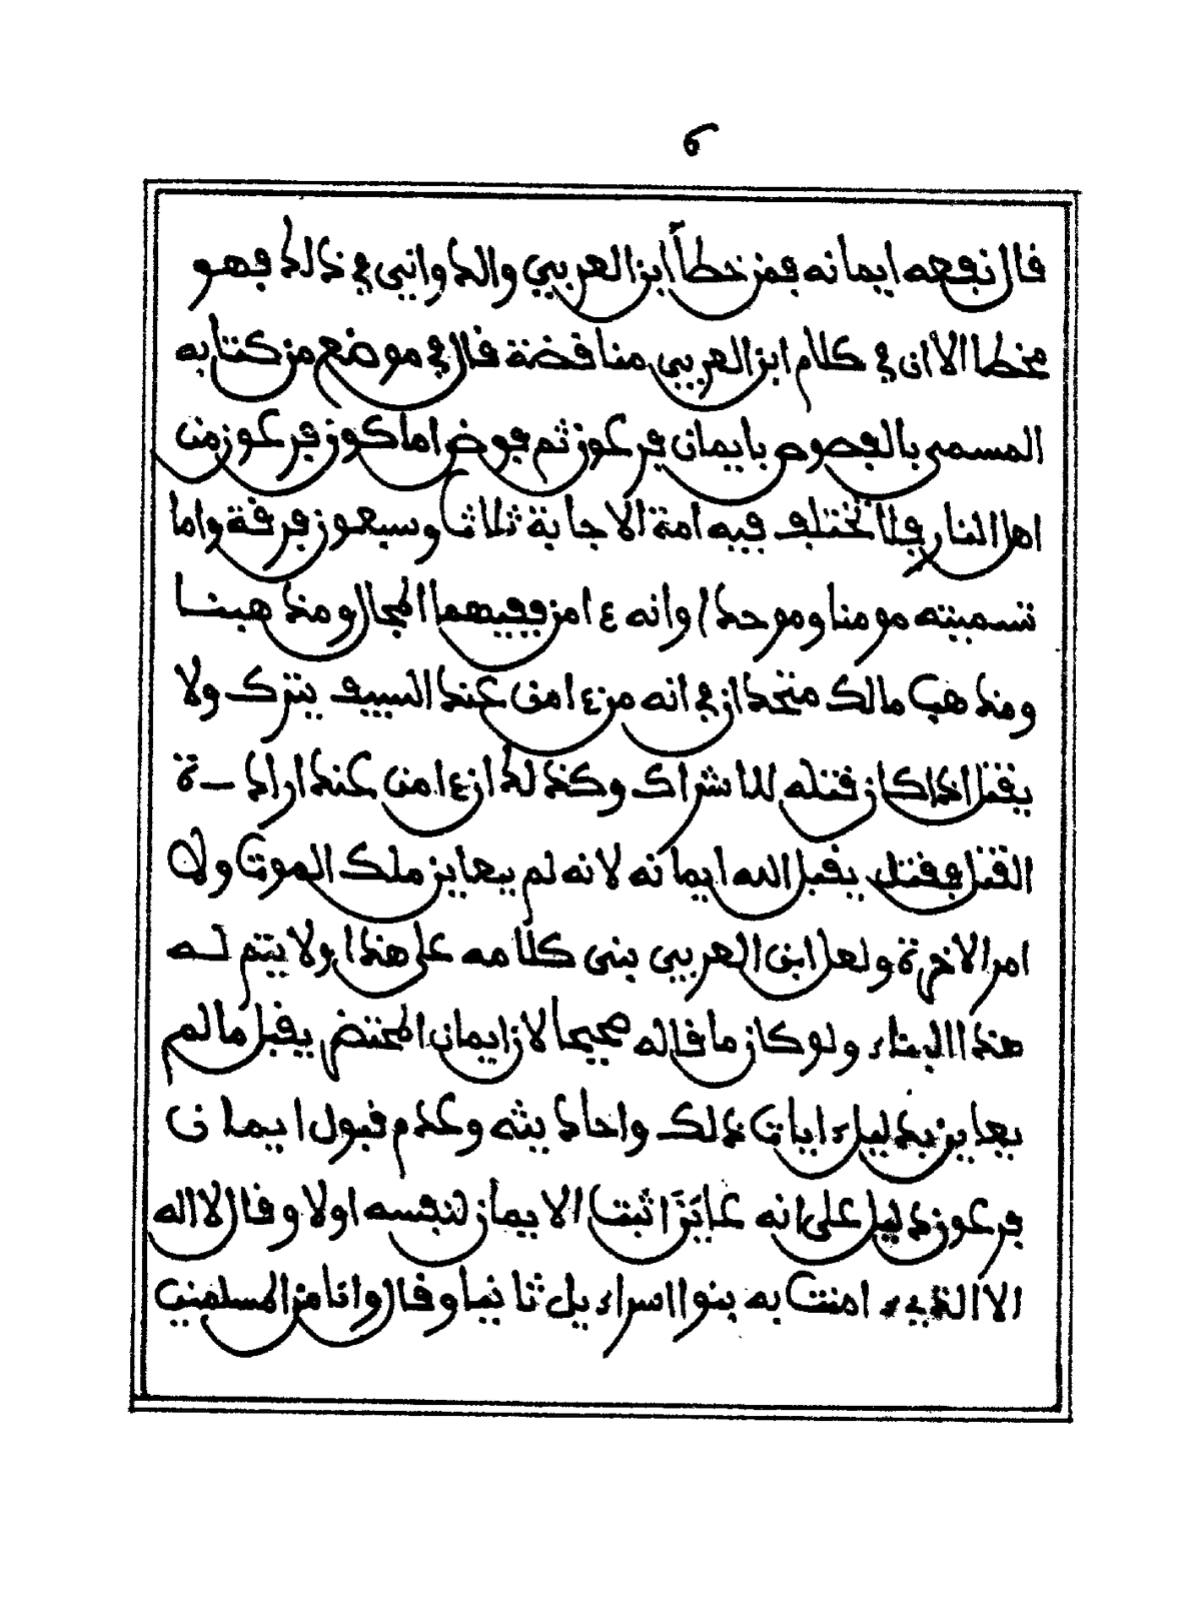 6
قال نفعه ايمانه فمن خطأ ابن العربي والدواني في ذلك فهو
مخطا الا ان في كلام ابن العربي مناقضة قال في موضع من كتابه
المسمى بالفصوص بايمان فرعون ثم فوض اما كون فرعون من
اهل النار فلا اختلف فيه امة الاجابة ثلاث وسبعون فرقة واما
تسميته مومنا وموحدا وانه ءامن ففيهما المجال ومذهبنا
ومذهب مالك متحدان في انه من ءامن عند السيف يترك ولا
يقتل اذا كان قتله للاشراك وكذلك ان ءامن عند ارادة
القتل فقتل يقبل الله ايمانه لانه لم يعاين ملك الموت ولا
امر الاخرة ولعل ابن العربي بنى كلامه على هذا ولا يتم له
هذا البناء ولو كان ما قاله صحيحا لان ايمان المحتضر يقبل ما لم
يعاين بدليل ءايات ذلك واحاديثه وعدم قبول ايمان
فرعون دليل على انه عايَنَ اثبت الايمان لنفسه اولا وقال لا اله
الا الذيء امنت به بنوا اسراءيل ثانيا وقال وانا من المسلمين